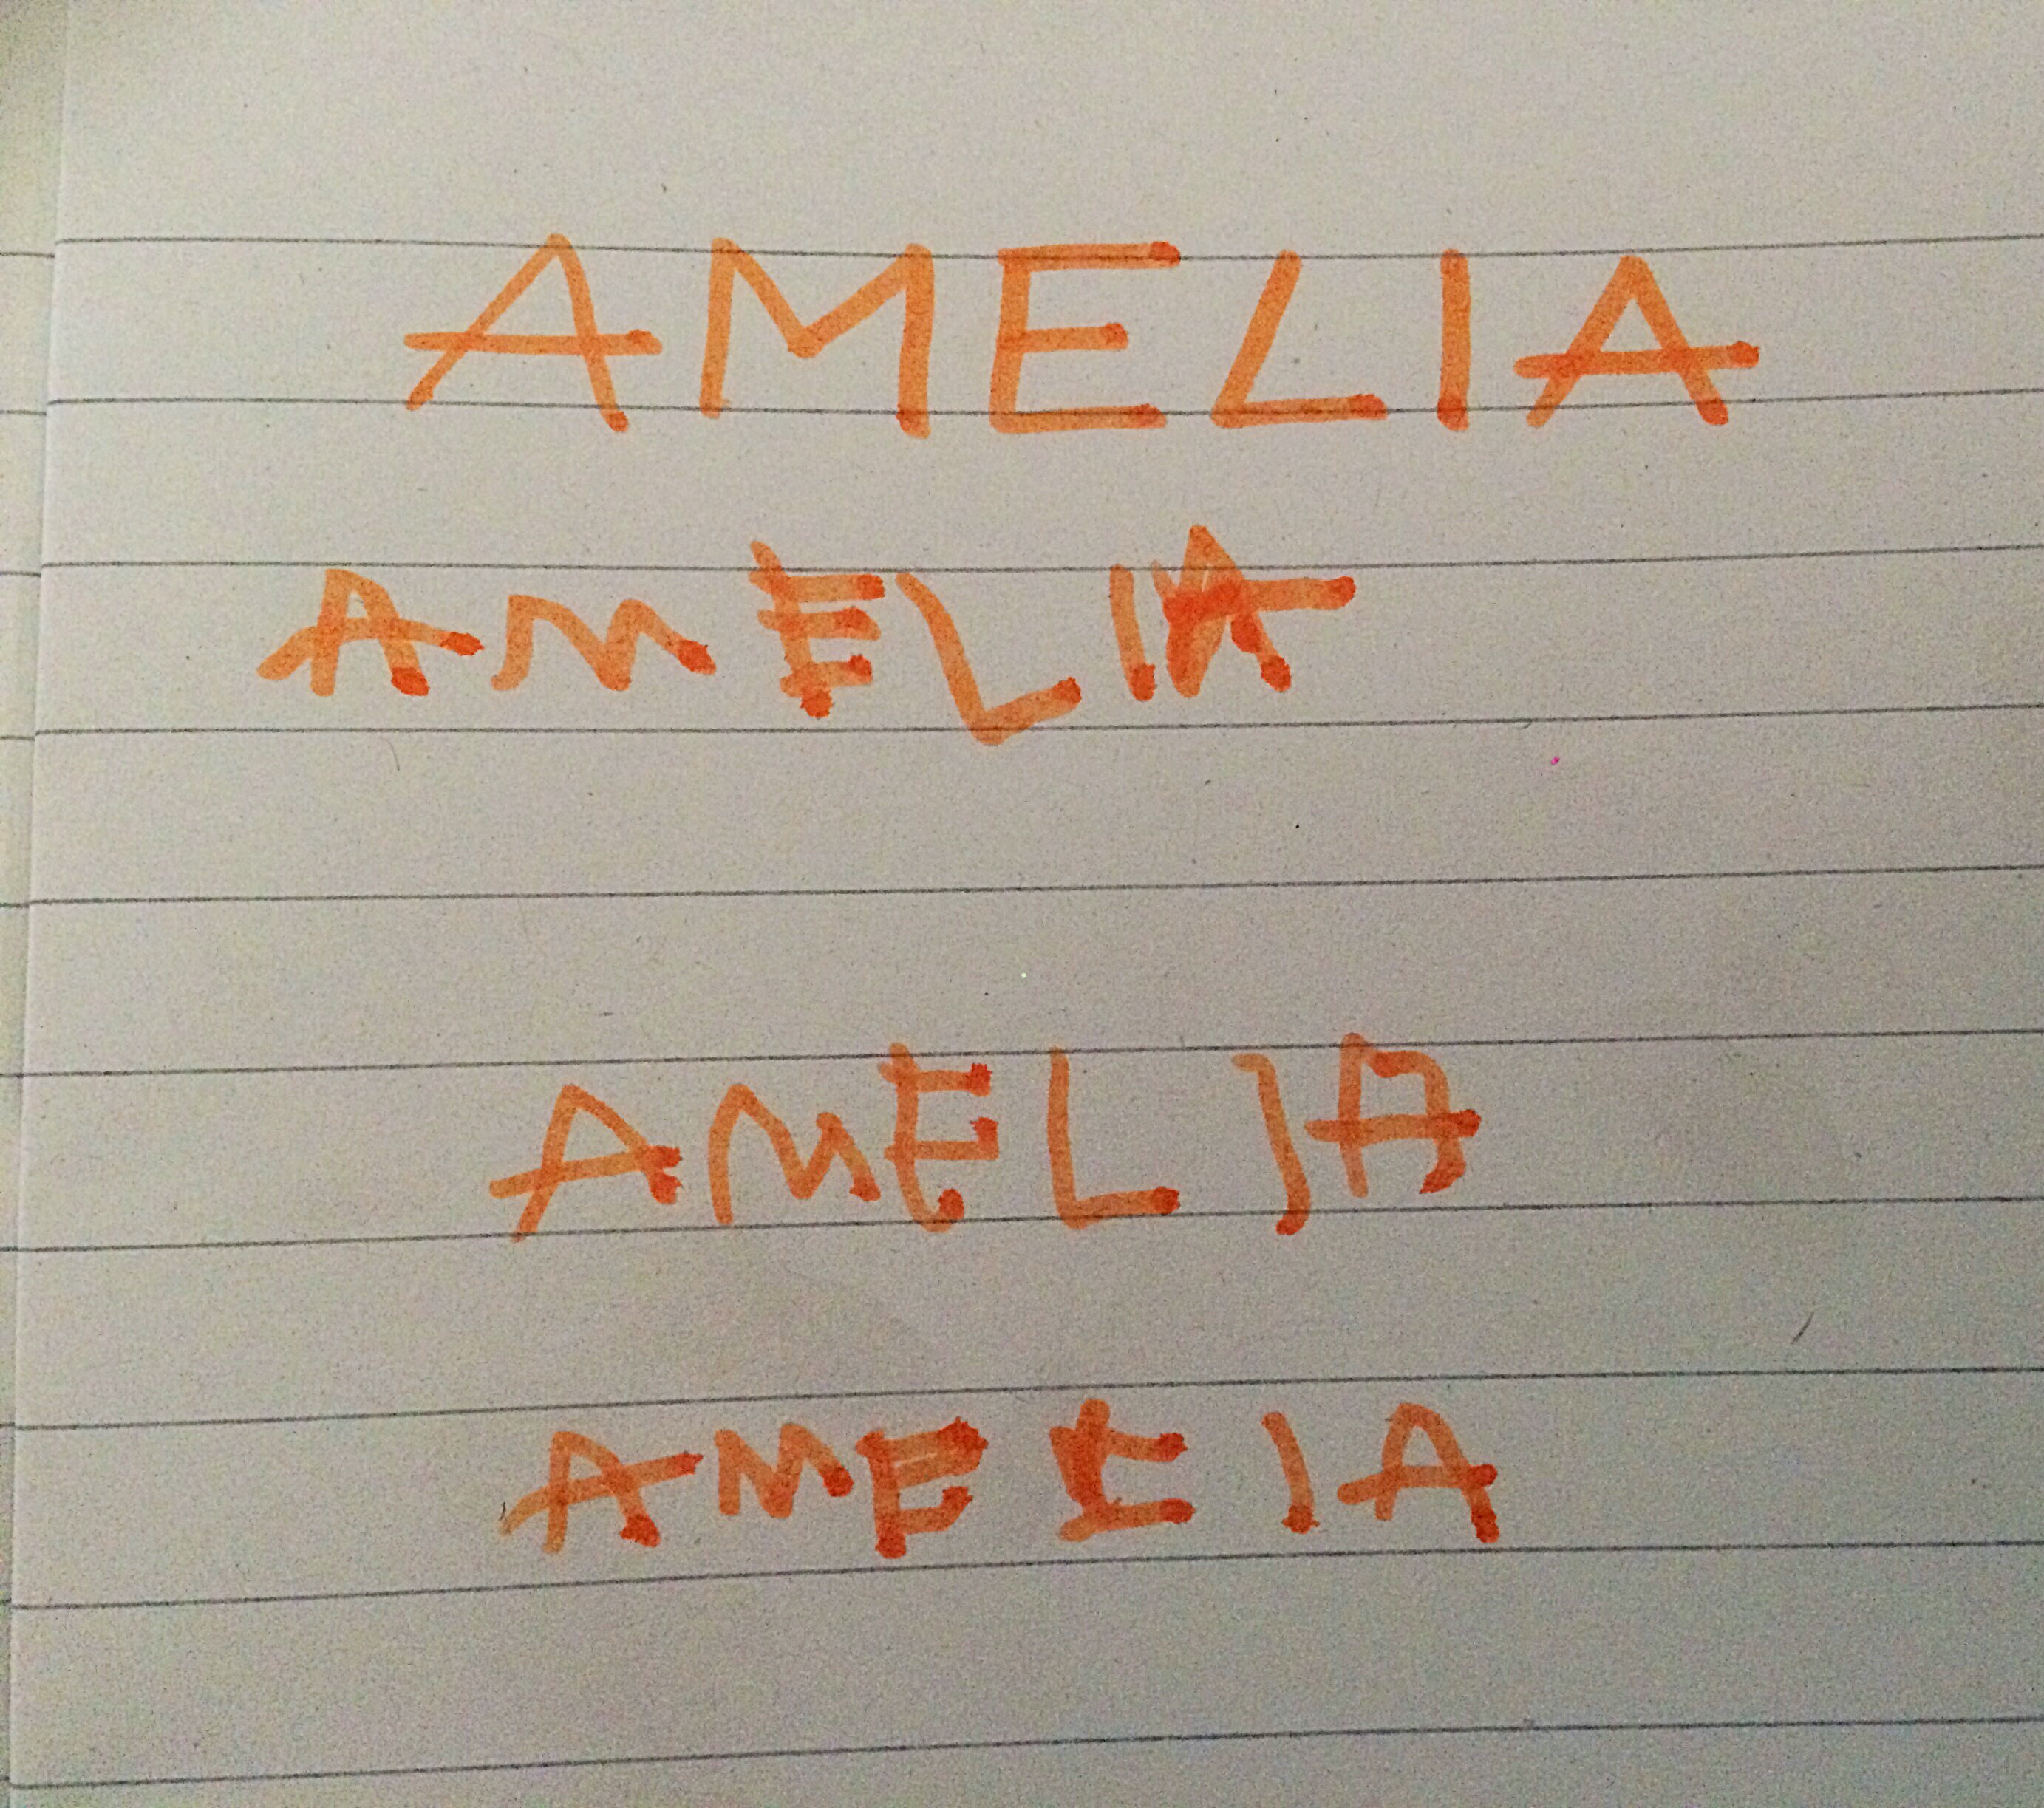 AMELIA
AMELIA
AMELIA
AMELIA